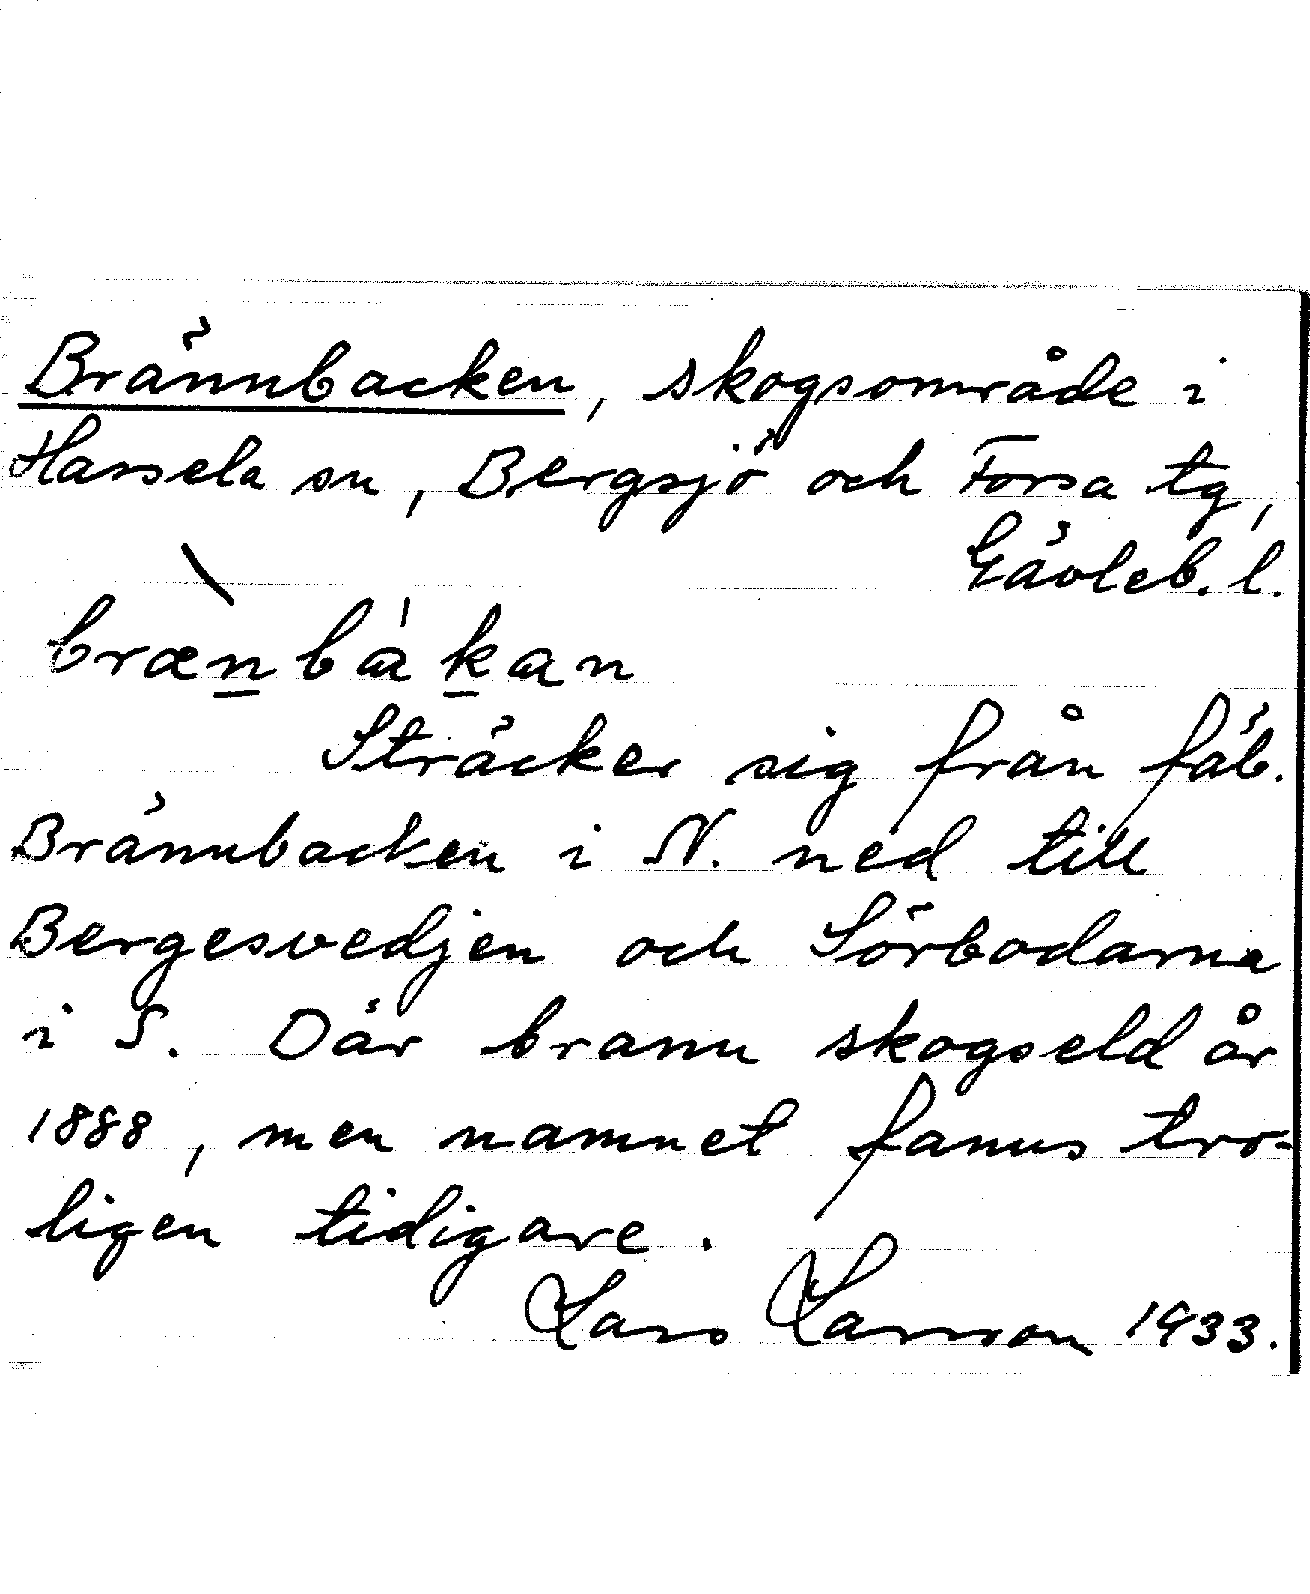 Brännbacken, skogsområde i
Hassela sn, Bergsjö och Forsa tg,
Gävleb. l.
bræ̀n̲bɑ̀k̲ɑn
Sträcker sig från fäb.
Brännbacken i N. ned till
Bergesvedjen och Sörbodarna
i S. Där brann skogseld år
1888, men namnet fanns tro-
ligen tidigare.
Lars Larsson 1933.